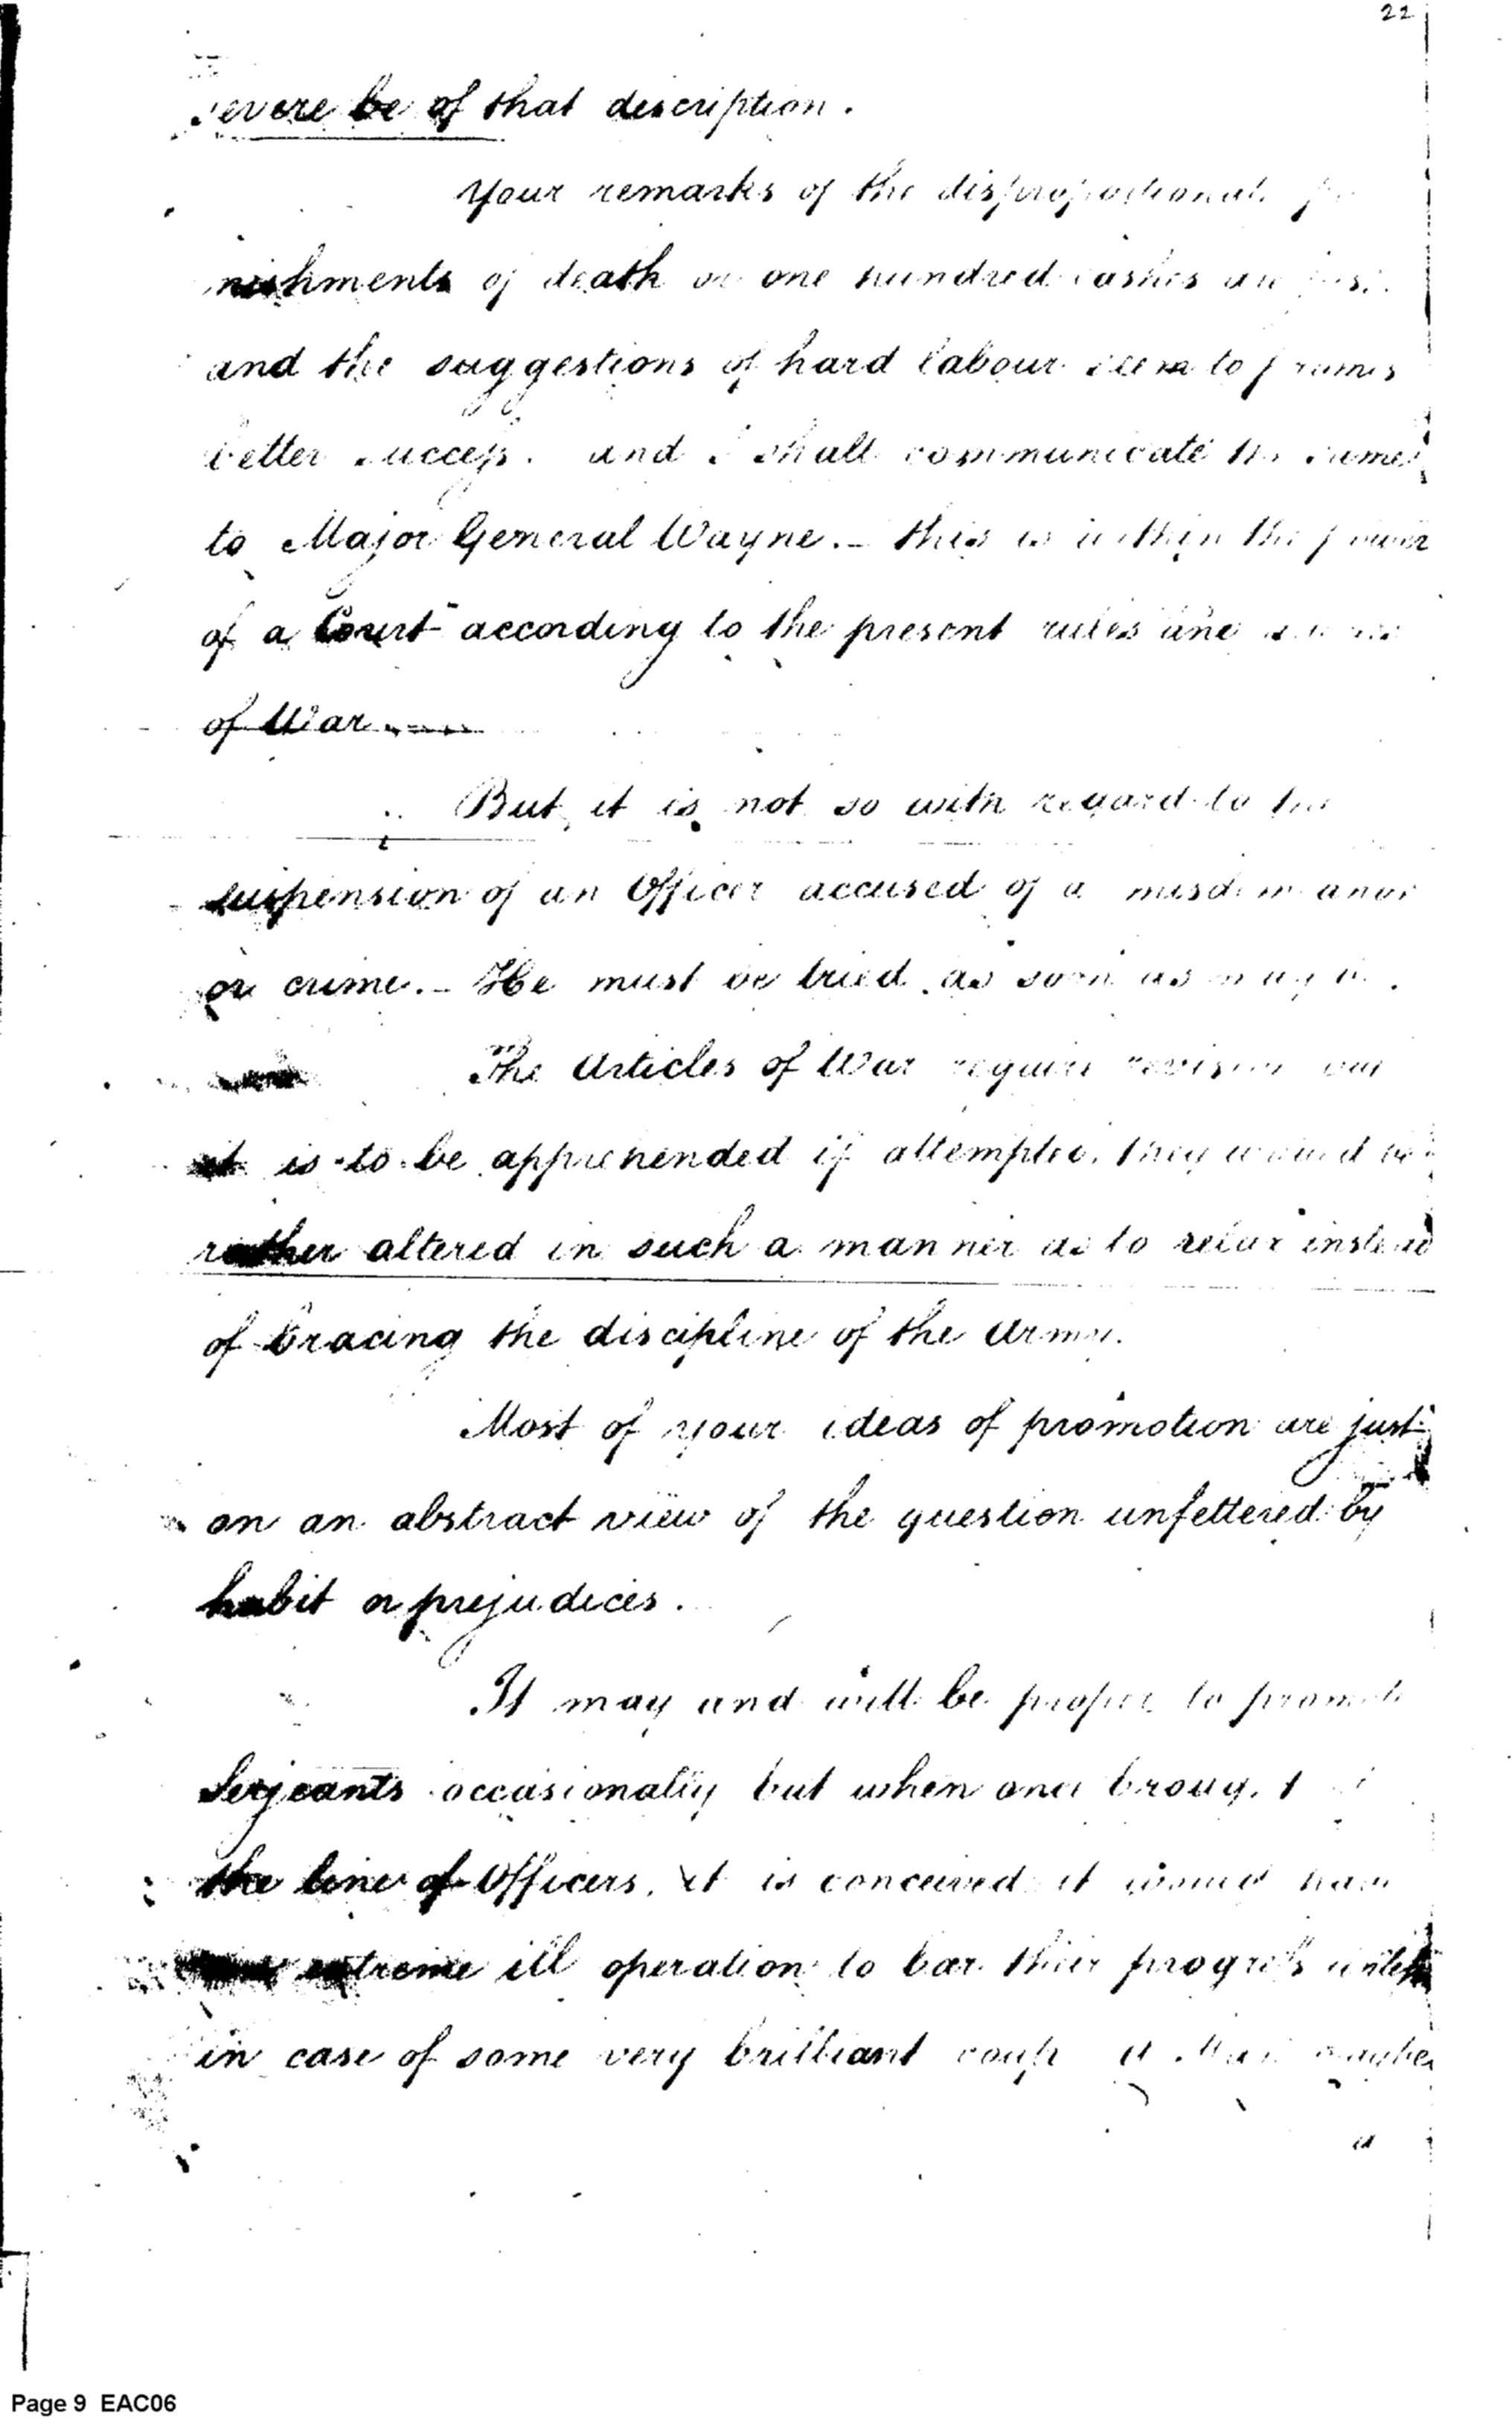 22
severe be of that description.
Your remarks of the disproportional pu
nishments of death or one hundred lashes are just
and the suggestions of hard labour seem to promis
better success. and I shall communicate the same
to Major General Wayne.— this is within the power
of a Court according to the present rules and
of War.
But it is not so with regard to the
suspension of an Officer accused of a misdemanor
or crime.— He must be tried as soon as may be.
The Articles of War require revision but
it is to be apprehended if attempted, they would be
rather altered in such a manner as to relax instead
of bracing the discipline of the Army.
Most of your ideas of promotion are just
on an abstract view of the question unfettered by
habit or prejudices.
It may and will be proper to promote
Serjeants occasionally but when once brought
the line of Officers, it is conceived it would have
extreme ill operation to bar their progress unless
in case of some very brilliant coup a Man maybe
a
Page 9 EAC06